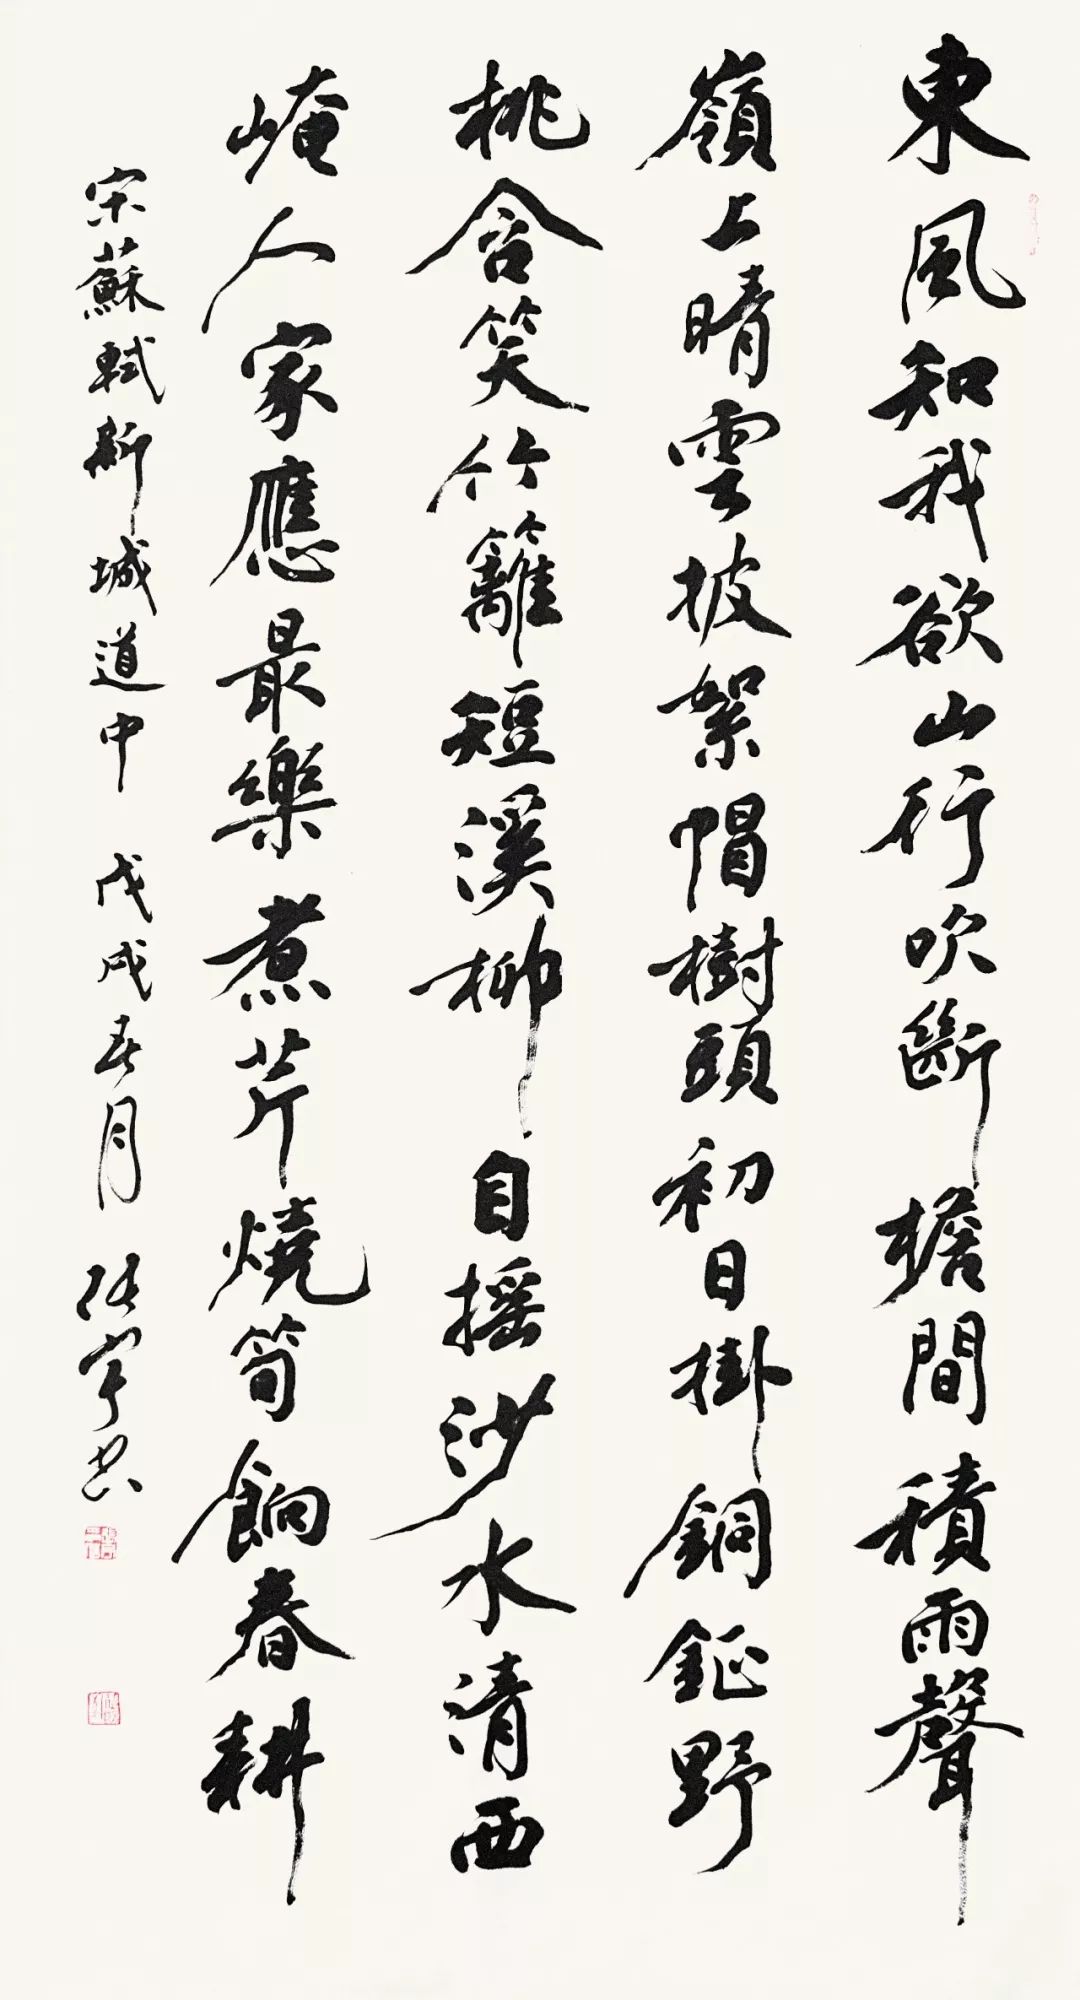 東風知我欲山行吹斷檐間積雨聲
嶺上晴雲披絮帽樹頭初日掛銅鉦野
桃含笑竹籬短溪柳自摇沙水清西
崦人家應最樂煮芹燒筍餉春耕
宋蘇軾新城道中 戊戌春月 張宇書